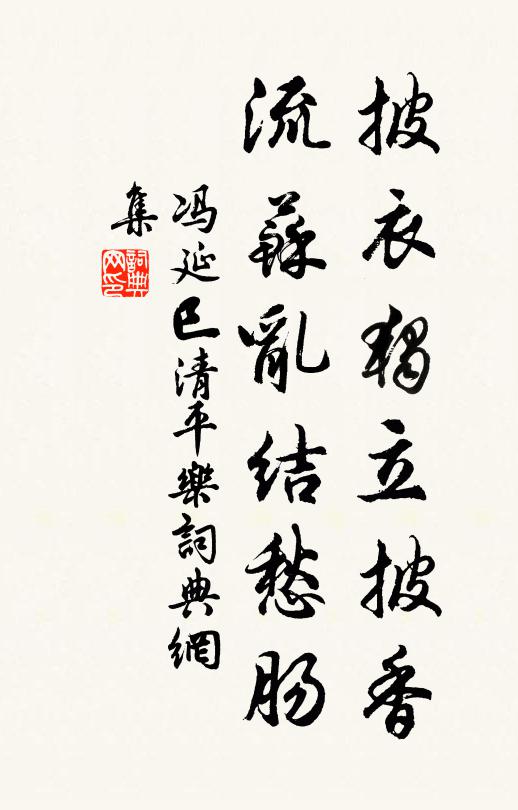 披衣獨立披香
流蘇亂結愁腸
冯延巳清平樂詞典網
集
詞典網印